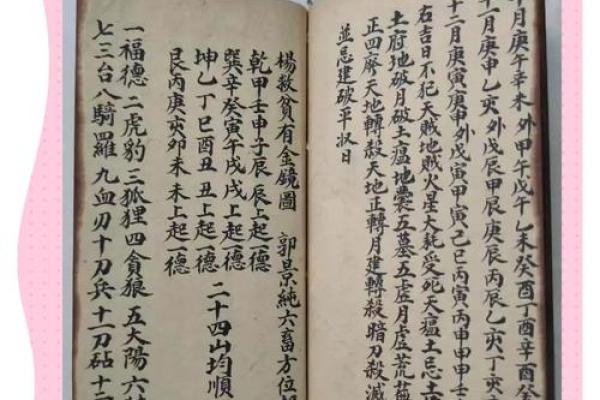 十月庚午辛未外甲午戊午乙未癸酉丁酉辛酉
十一月庚申乙亥外戊辰甲辰庚辰丙辰乙亥丁亥
十二月庚寅庚申外戊寅甲寅己巳丙寅丙申甲申壬
右吉日不犯天賊地賊火星大耗受死天瘟土忌土
土府地破月破土瘟地囊五墓五虛月虛荒蕪
正四廢天地轉殺天地正轉月建轉殺暗刀殺滅
並忌建破平收日
楊救貧有金鏡圖 郭景純六畜方位
乾甲壬申子辰辰上起一德
巽辛癸寅午戌戌上起一德
坤乙丁巳酉丑丑上起一德
艮丙庚亥卯未未上起一德
二十四山均順
一福德二虎豹三狐狸四貪狼五大陽六
七三台八騎羅九血刃十刀兵十一刀砧十二